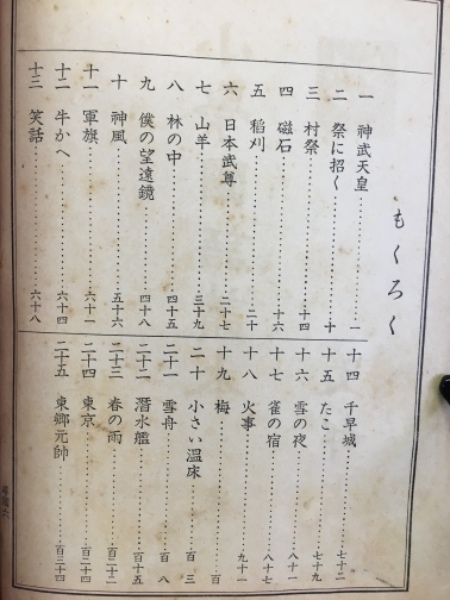 もくろく
一 神武天皇 一
二 祭に招く 十
三 村祭 十四
四 磁石 十六
五 稻刈 二十
六 日本武尊 二十七
七 山羊 三十九
八 林の中 四十五
九 僕の望遠鏡 四十八
十 神風 五十六
十一 軍旗 六十一
十二 牛かへ 六十四
十三 笑話 六十八
十四 千早城 七十二
十五 たこ 七十九
十六 雪の夜 八十一
十七 雀の宿 八十七
十八 火事 九十一
十九 梅 百
二十 小さい温床 百三
二十一 雪舟 百八
二十二 潛水艦 百十五
二十三 春の雨 百二十二
二十四 東京 百二十四
二十五 東郷元帥 百三十四